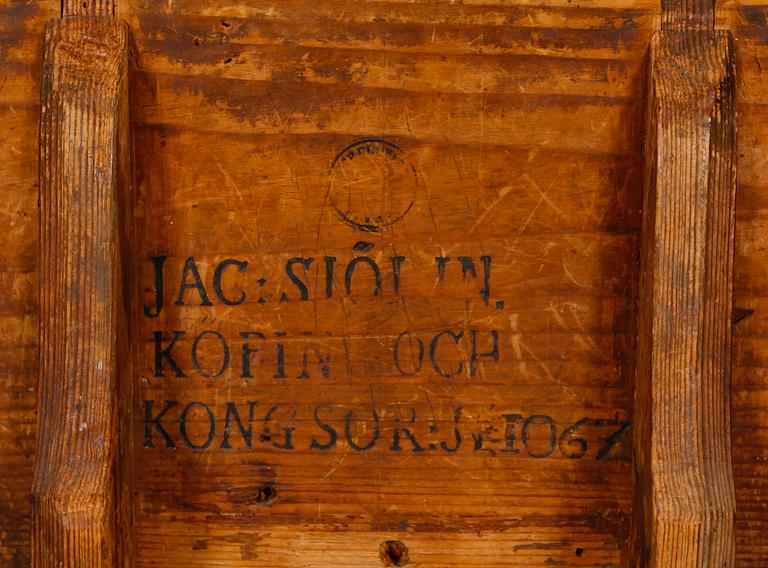 JAC: SJÖLIN.
KÖPING OCH
KONGSÖR: J: 1067